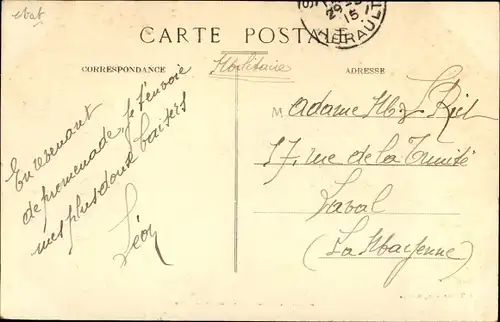 etat
29
15
HERAULT
CARTE POSTALE
Militaire
CORRESPONDANCE
ADRESSE
En revenant
de promenade, je t'envoie
mes plus doux baisers
Léon
Madame M L. Riel
17, rue de la Trinité
Laval
(La Mayenne)